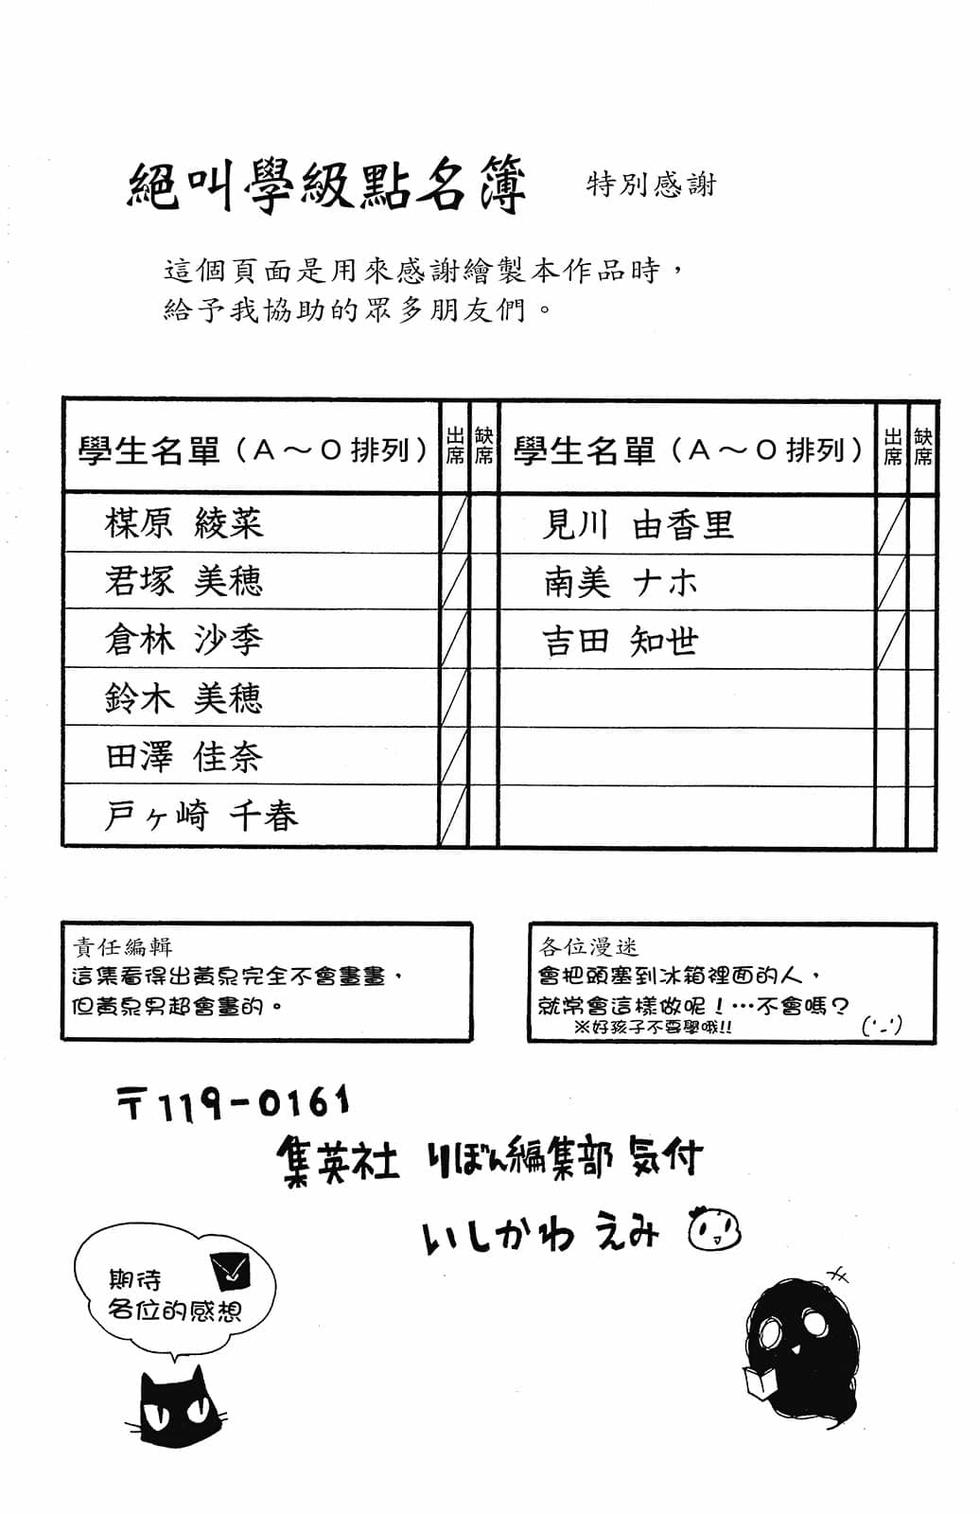 絕叫學級點名簿 特別感謝
這個頁面是用來感謝繪製本作品時，
給予我協助的眾多朋友們。
學生名單（A～O排列） 出席 缺席 學生名單（A～O排列） 出席 缺席
楳原 綾菜 見川 由香里
君塚 美穂 南美 ナホ
倉林 沙季 吉田 知世
鈴木 美穂
田澤 佳奈
戸ヶ崎 千春
責任編輯
這集看得出黃泉完全不會畫畫，
但黃泉男超會畫的。
各位漫迷
會把頭塞到冰箱裡面的人，
就常會這樣做呢！…不會嗎？
※好孩子不要學哦!! ('-')
〒119-0161
集英社 りぼん編集部 気付
いしかわ えみ
期待
各位的感想